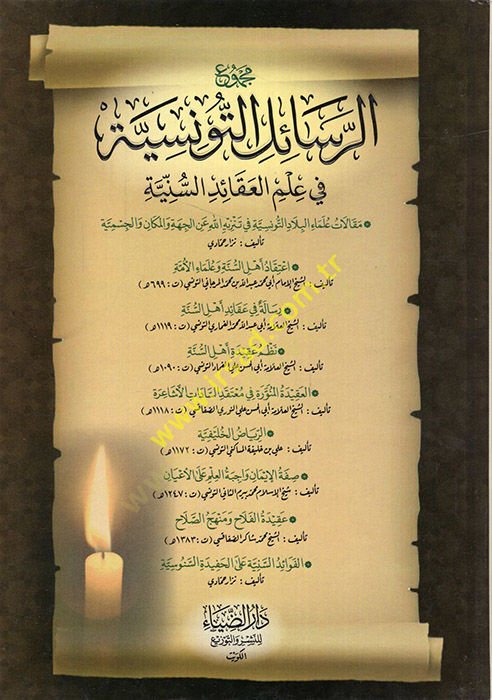 مجموع
الرَّسَائِلُ التُّونِسِيَّة
في عِلْمِ العَقَائِدِ السُّنِّيَّةِ
مَقَالَاتُ عُلَمَاءِ البِلَادِ التُّونِسِيَّةِ فِي تَنْزِيهِ اللهِ عَنِ الجِهَةِ وَالمَكَانِ وَالجِسْمِيَّةِ
تأليف : نزار حمادي
اعْتِقَادُ أَهْلِ السُّنَّةِ وَعُلَمَاءِ الأُمَّةِ
للشيخ الإمام أبي محمد عبد الله بن محمد المرجاني التونسي (ت : ٦٩٩هـ)
رِسَالَةٌ فِي عَقَائِدِ أَهْلِ السُّنَّةِ
للشيخ العلامة أبي عبد الله محمد الغماري التونسي (ت : ١١١٩هـ)
نَظْمُ عَقِيدَةِ أَهْلِ السُّنَّةِ
تأليف : الشيخ العلامة أبي الحسن علي الغماد التونسي (ت : ١٠٩٠هـ)
العَقِيدَةُ المُنَوَّرَةُ فِي مُعْتَقَدِ السَّادَاتِ الأَشَاعِرَةِ
تأليف : الشيخ العلامة أبي الحسن علي النوري الصفاقسي (ت : ١١١٨هـ)
الرِّيَاضُ الخُلَيْفِيَّةِ
تأليف : علي بن خليفة المساكني التونسي (ت : ١١٧٢هـ)
صِفَةُ الإِيْمَانِ وَاجِبَةُ العِلْمِ عَلَى الأَعْيَانِ
تأليف : شيخ الإسلام محمد بيرم الثاني التونسي (ت : ١٢٤٧هـ)
عَقِيدَةُ الفَلَاحِ وَمَنْهَجُ الصَّلَاحِ
تأليف : الشيخ محمد شاكر الصفاقسي (ت : ١٣٨٣هـ)
الفَوَائِدُ السَّنِيَّةِ عَلَى الحَفِيدَةِ السَّنُوسِيَّةِ
تأليف : نزار حمادي
دَارُ الضِّيَاءِ
للنشر والتوزيع
الكويت
www.irsad.com.tr